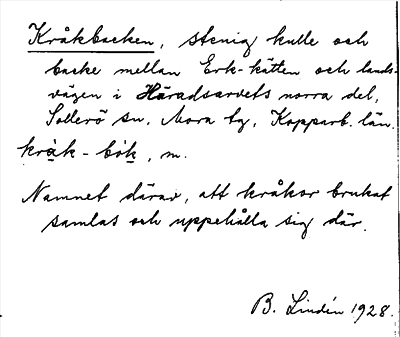 Kråkbacken, stenig kulle och
backe mellan Erk-kätten och lands-
vägen i Häradsarvets norra del,
Sollerö sn, Mora tg, Kopparb. län.
kråk-bok, m.
Namnet därav, att kråkor brukat
samlas och uppehålla sig där.
B. Lindén 1928.